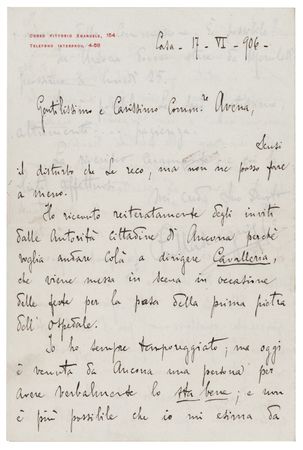 CORSO VITTORIO EMANUELE, 154
TELEFONO INTERPROV. 4-68
Casa - 17 - VI - 906 -
Gentilissimo e Carissimo Comm.re Avena,
Scusi
il disturbo che Le reco, ma non ne posso fare
a meno.
Ho ricevuto reiteratamente degli inviti
dalle Autorità cittadine di Ancona perchè
voglia andare colà a dirigere Cavalleria,
che viene messa in scena in occasione
delle feste per la posa della prima pietra
dell'Ospedale.
Io ho sempre temporeggiato; ma oggi
è venuta da Ancona una persona per
avere verbalmente lo sta bene; e non
è più possibile che io mi esima da